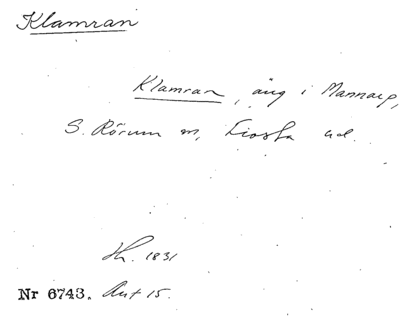 Klamran
Klamran, äng i Mannarp,
S. Rörum sn, Frosta hd.
Sk. 1831
Nr 6743. Akt 15.